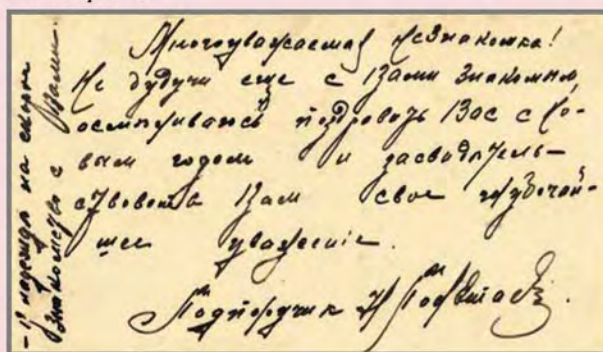 Многоуважаемая незнакомка!
Не будучи еще с Вами знакомым,
осмеливаюсь поздравить Вас с Но-
вым годом и засвидѣтель-
ствовать Вам свое глубочай-
шее уваженіе.
Подпоручик Н
надежда на скорое
знакомство с Вами.